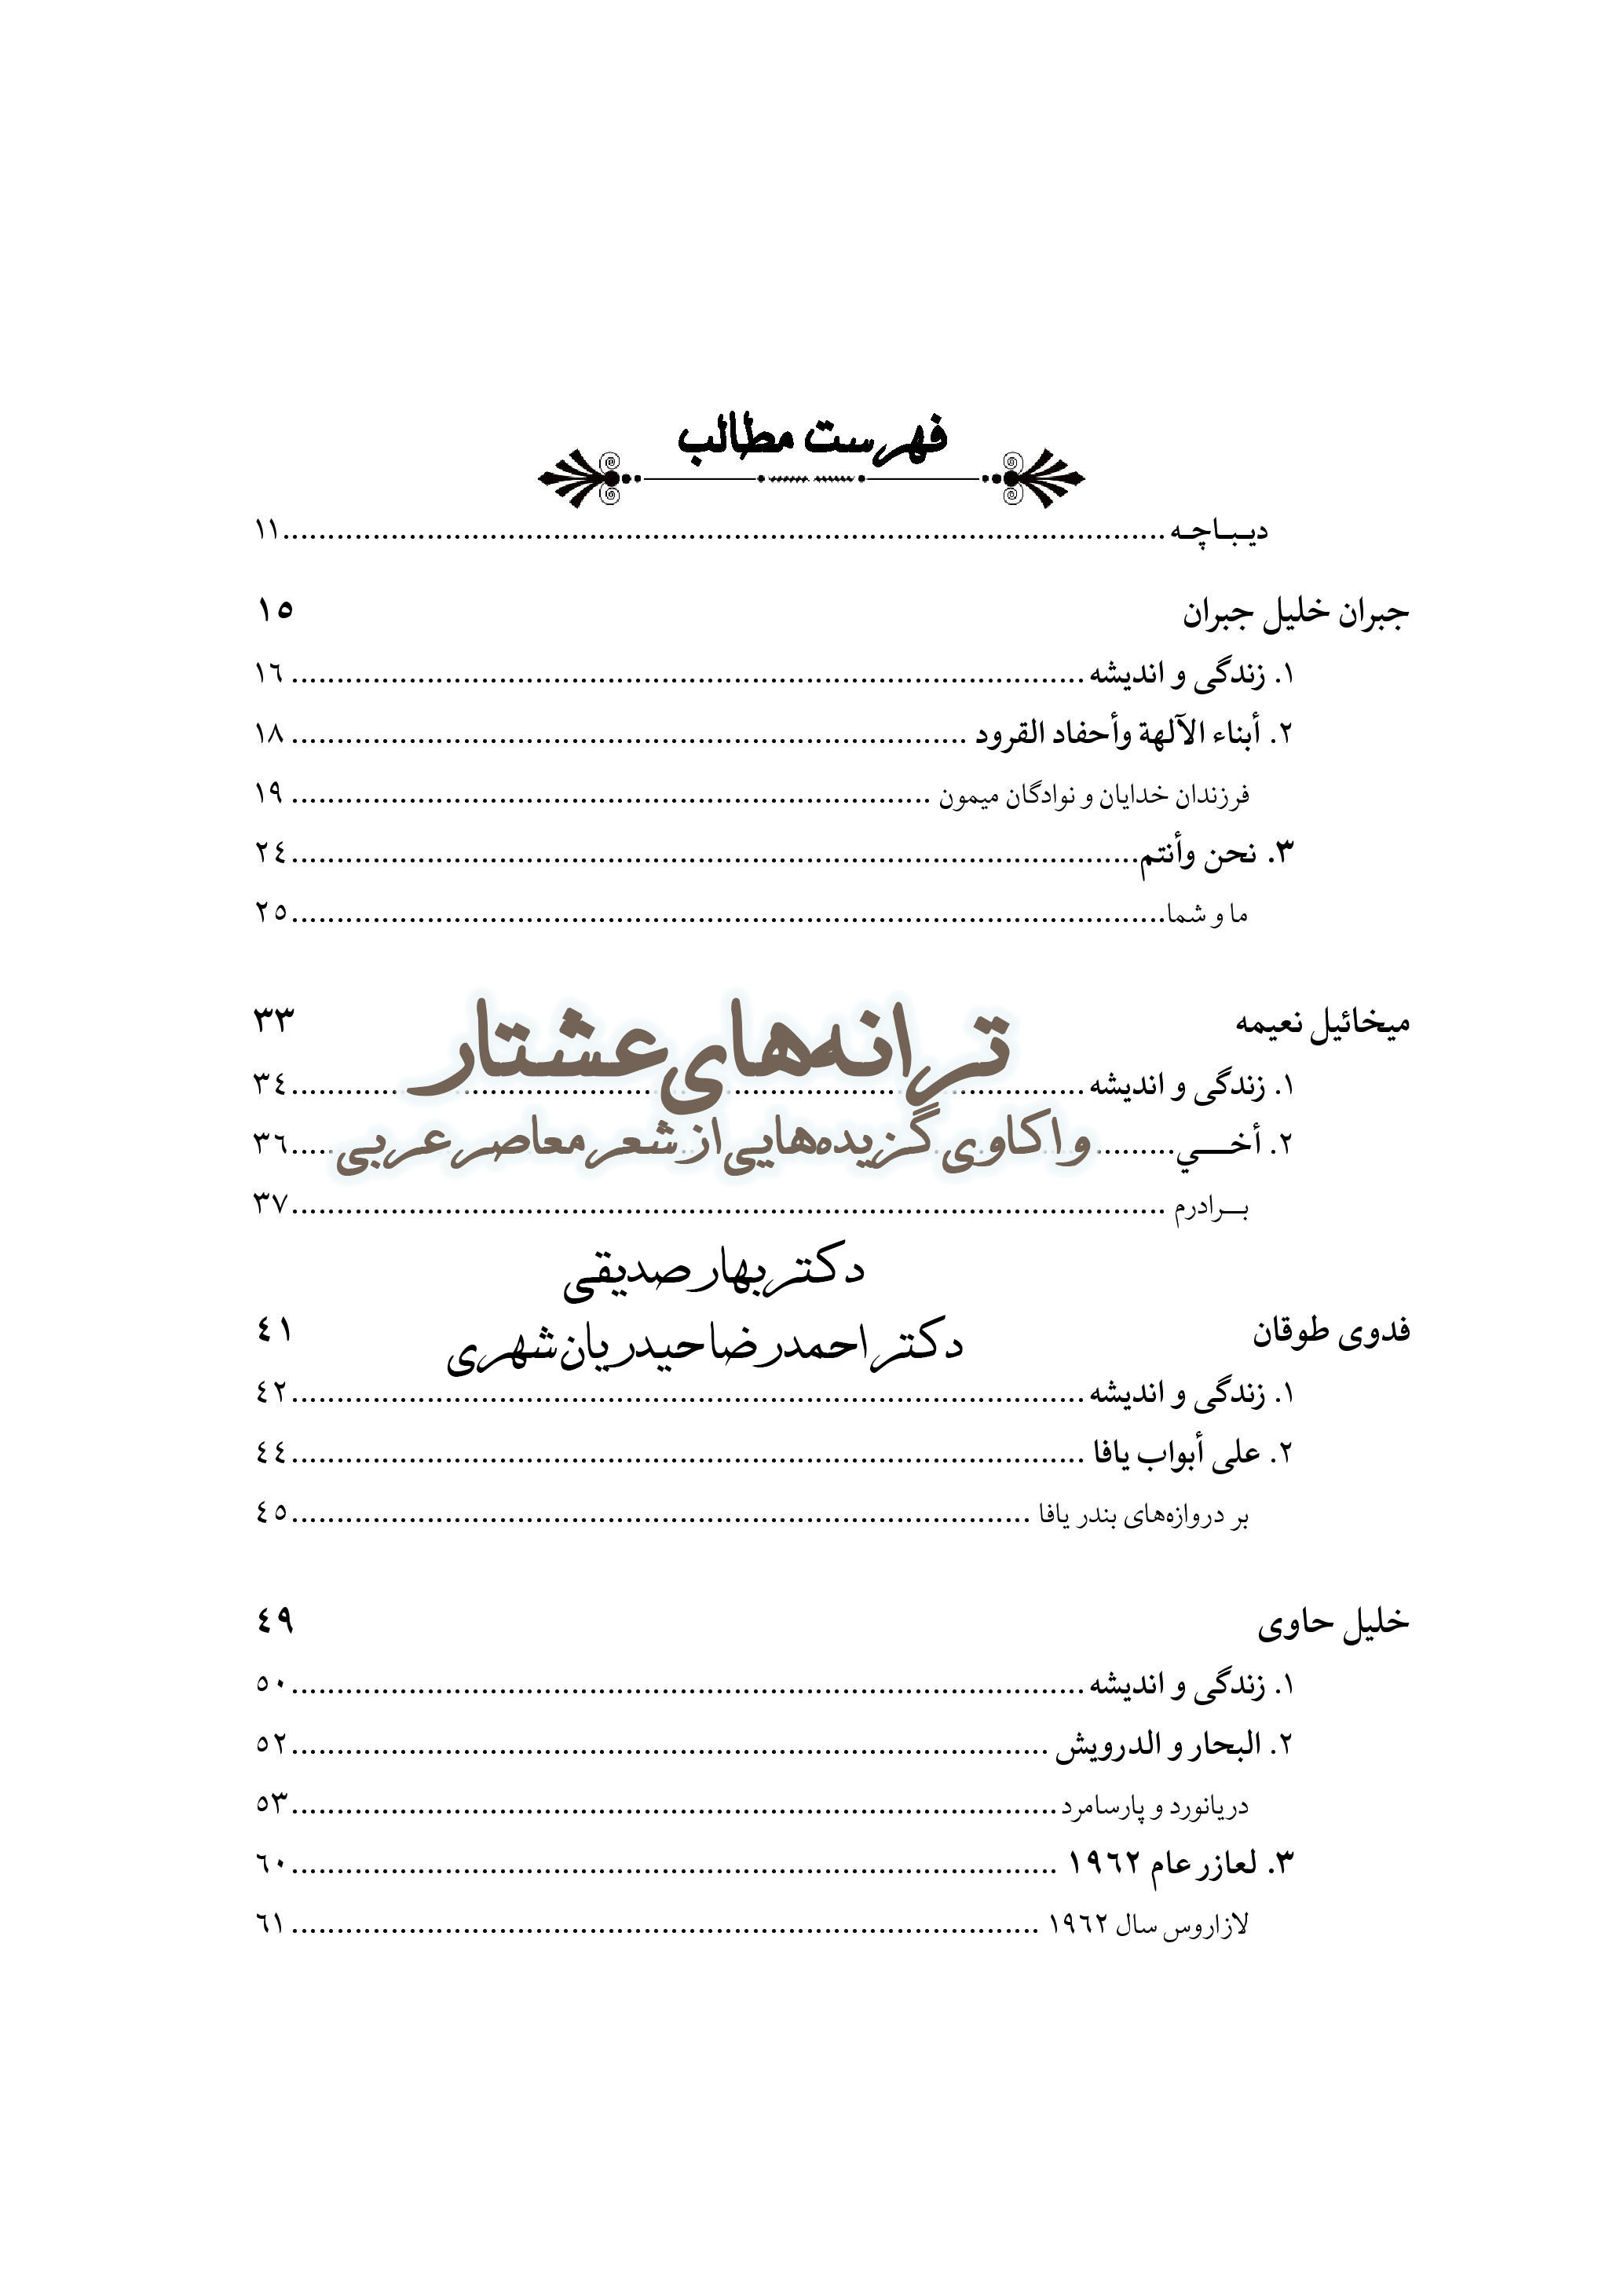 فهرست مطالب
دیـبـاچـه ........ ١١
جبران خلیل جبران ١٥
١. زندگی و اندیشه ........ ١٦
٢. أبناء الآلهة وأحفاد القرود ........ ١٨
فرزندان خدایان و نوادگان میمون ........ ١٩
٣. نحن وأنتم ........ ٢٤
ما و شما ........ ٢٥
میخائیل نعیمه ٣٣
ترانه‌های عشتار
١. زندگی و اندیشه ........ ٣٤
واکاوی گزیده‌هایی از شعر معاصر عربی
٢. أخـــي ........ ٣٦
بـــرادرم ........ ٣٧
دکتر بهار صدیقی
فدوی طوقان ٤١
دکتر احمدرضا حیدریان‌شهری
١. زندگی و اندیشه ........ ٤٢
٢. علی أبواب یافا ........ ٤٤
بر دروازه‌های بندر یافا ........ ٤٥
خلیل حاوی ٤٩
١. زندگی و اندیشه ........ ٥٠
٢. البحار و الدرویش ........ ٥٢
دریانورد و پارسامرد ........ ٥٣
٣. لعازر عام ١٩٦٢ ........ ٦٠
لازاروس سال ١٩٦٢ ........ ٦١